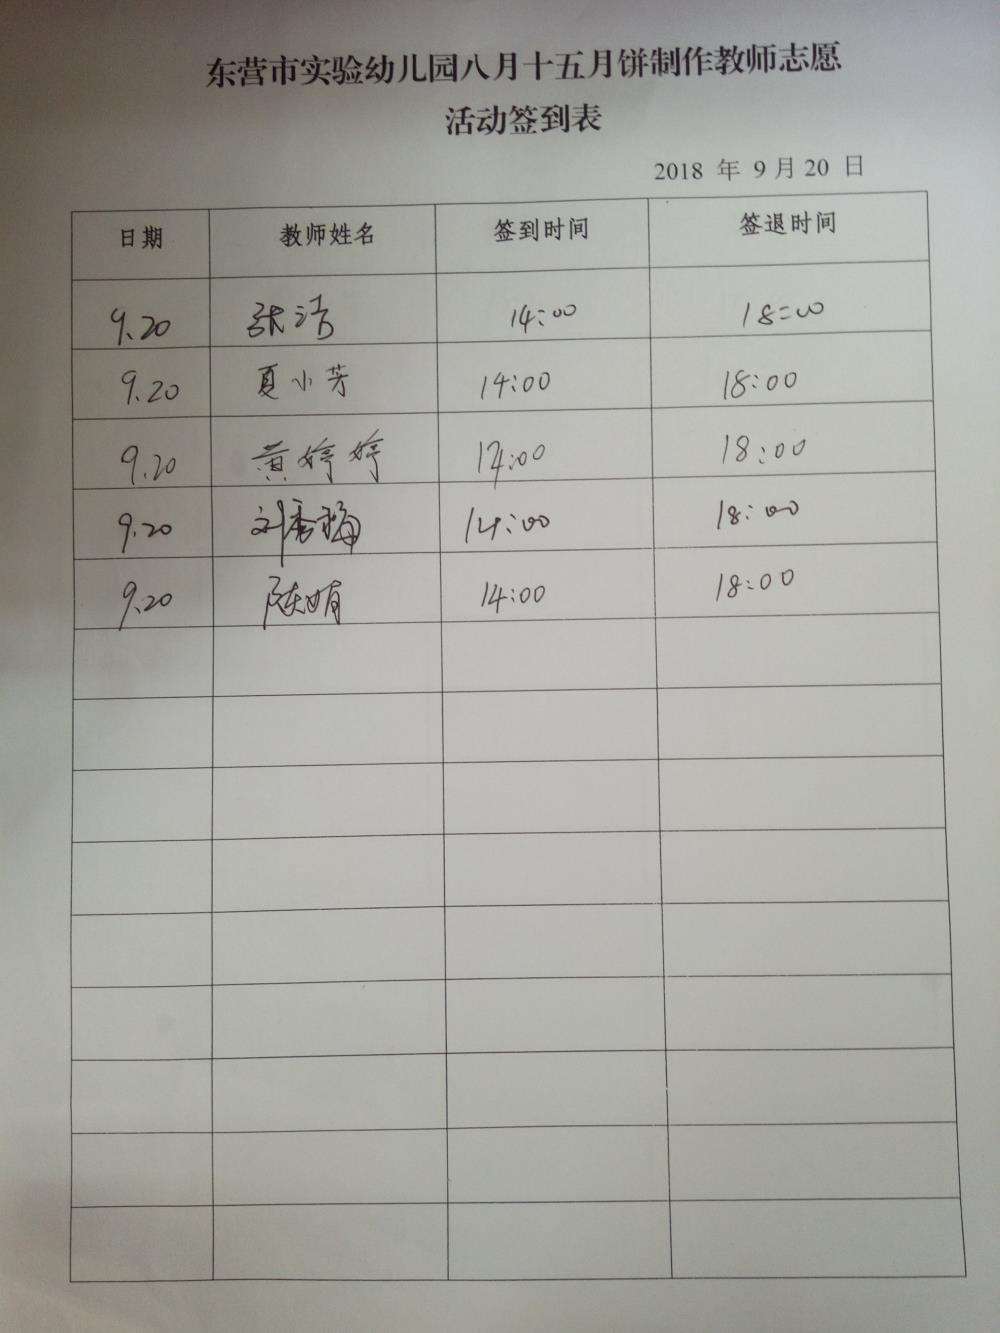 东营市实验幼儿园八月十五月饼制作教师志愿
活动签到表
2018 年 9月20 日
日期 教师姓名 签到时间 签退时间
9.20 张洁 14:00 18:00
9.20 夏小芳 14:00 18:00
9.20 黄婷婷 14:00 18:00
9.20 刘秀梅 14:00 18:00
9.20 陈娟 14:00 18:00